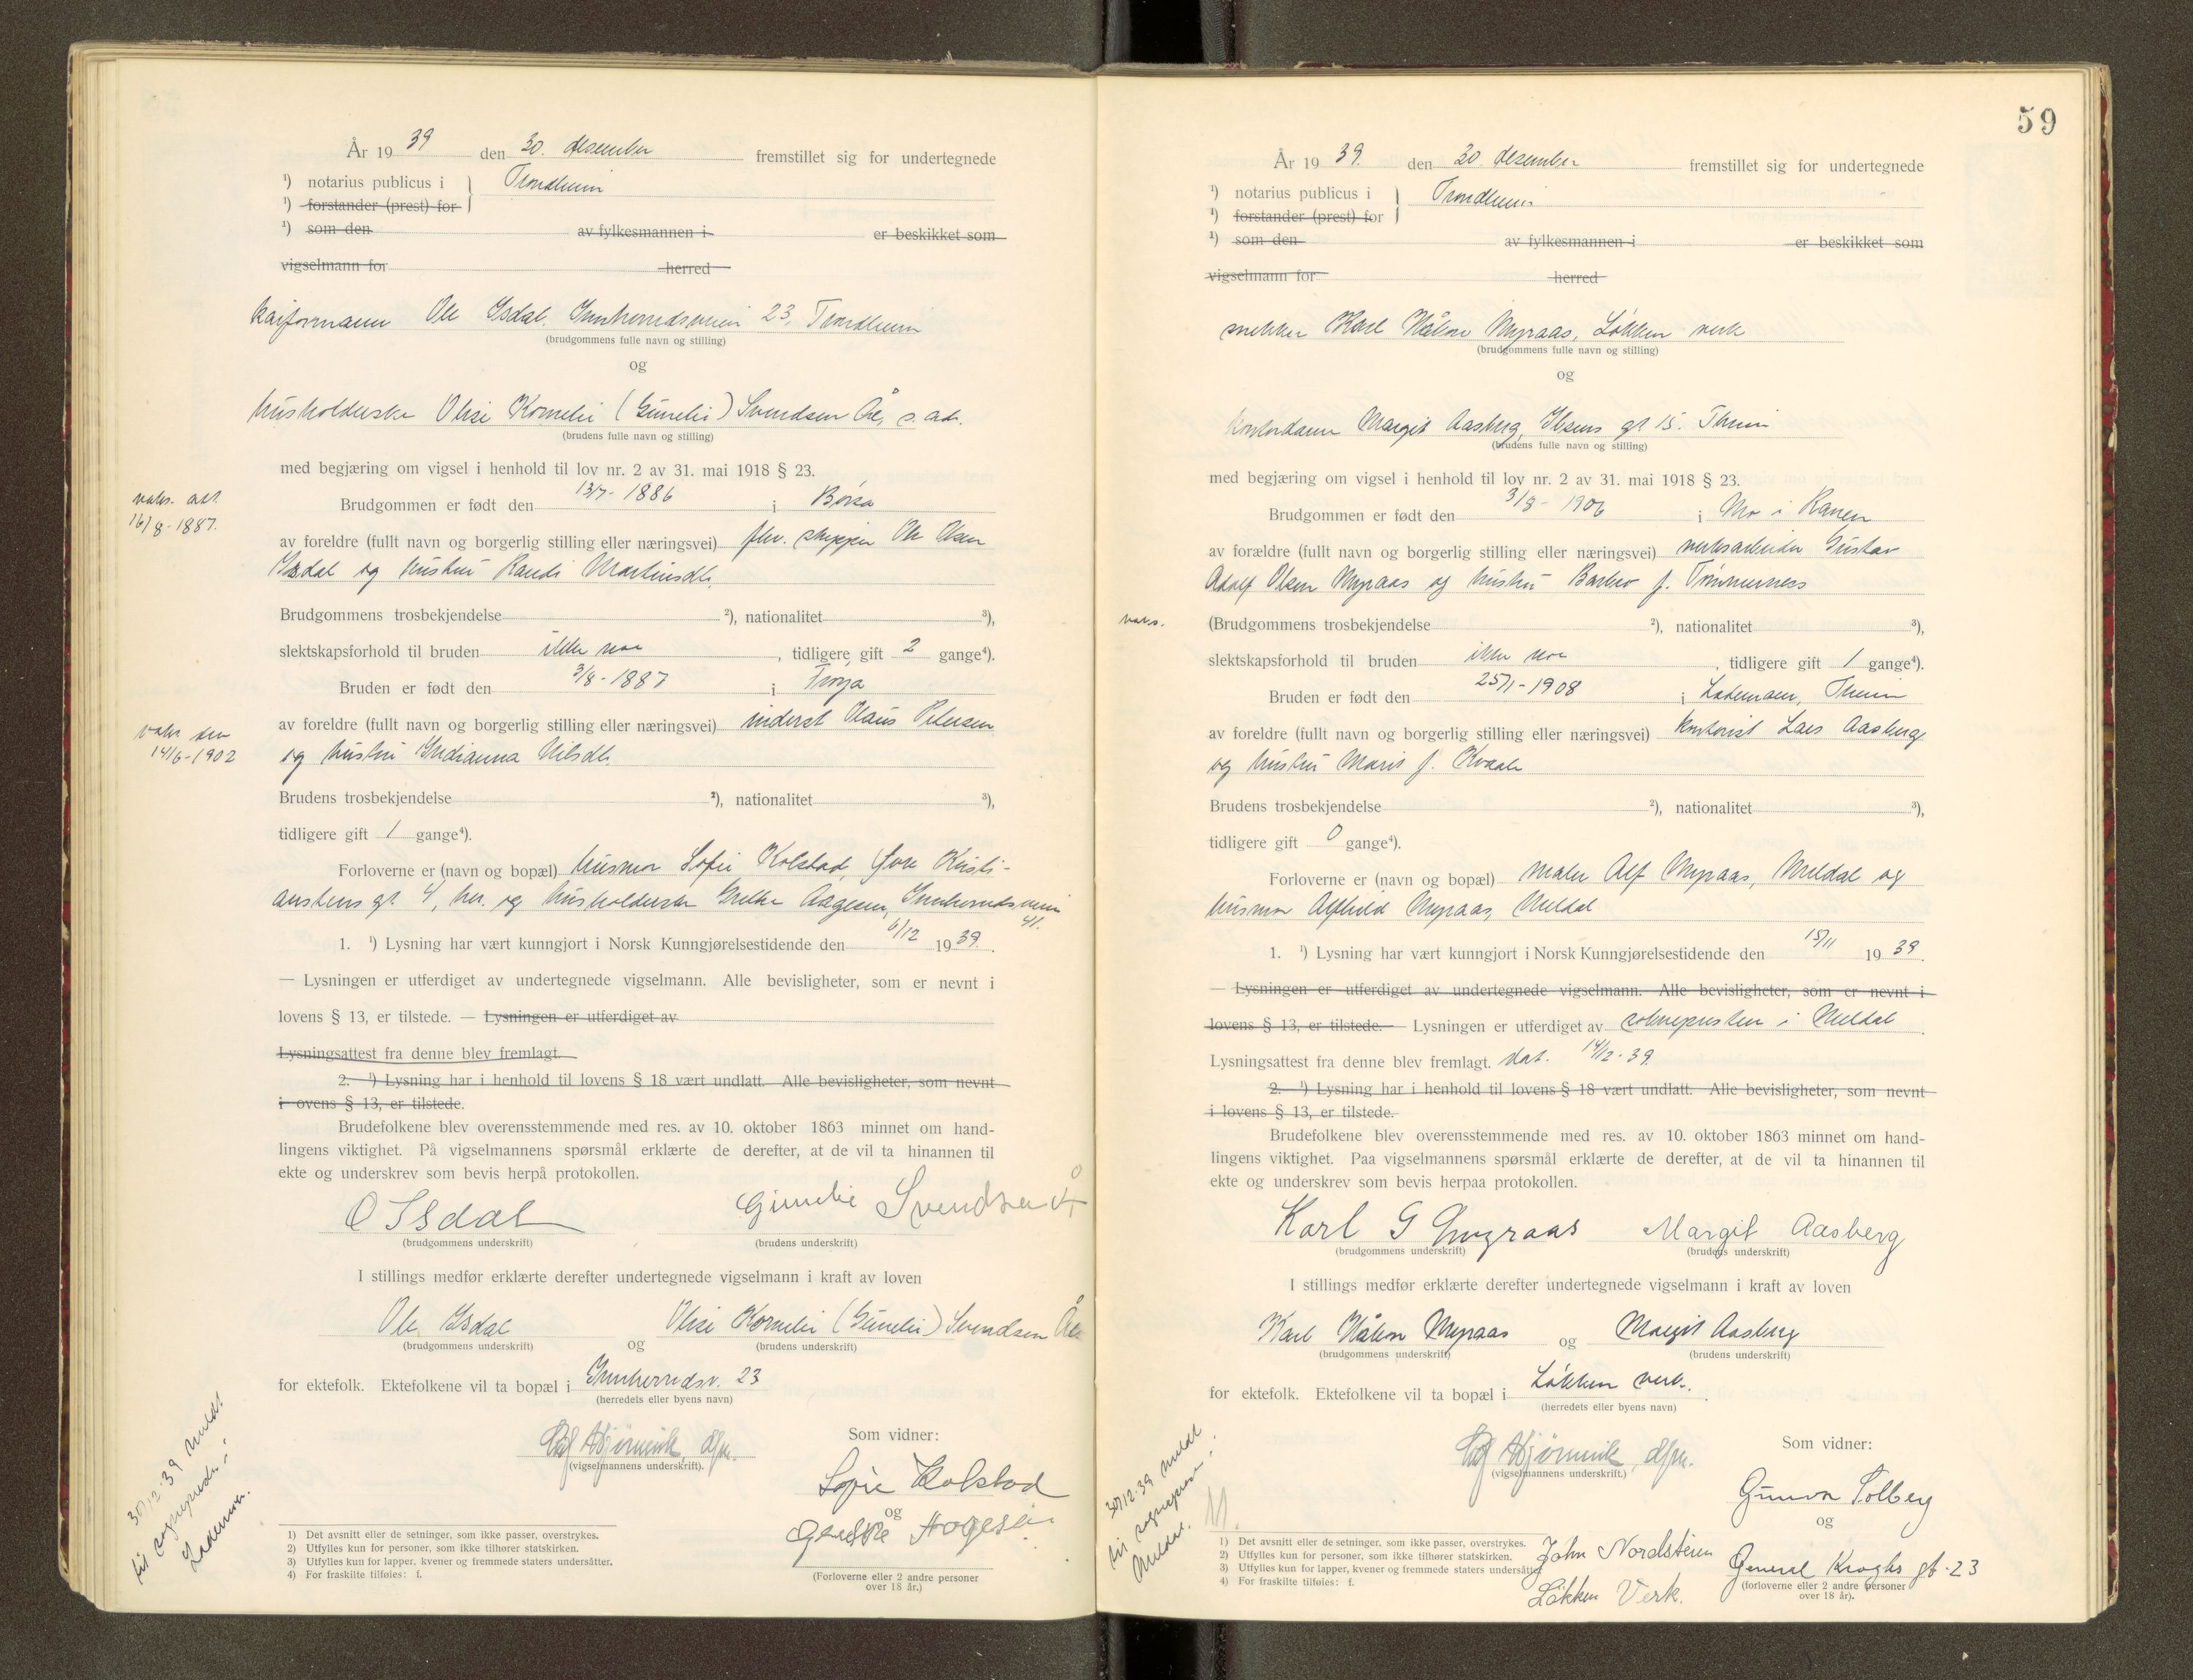 År 19 39 den 30. desember fremstillet sig for undertegnede
¹) notarius publicus i Trondheim
¹) forstander (prest) for
¹) som den av fylkesmannen i er beskikket som
vigselmann for herred
kaiformann Ole Isdal, Innherredsveien 23, Trondheim
(brudgommens fulle navn og stilling)
og
husholderske Olise Kornelie (Gunelie) Svendsen Åe, s. adr.
(brudens fulle navn og stilling)
med begjæring om vigsel i henhold til lov nr. 2 av 31. mai 1918 § 23.
vaks. att.
16/8-1887.
Brudgommen er født den 13/7-1886 i Børsa
av foreldre (fullt navn og borgerlig stilling eller næringsvei) fhv. skipper Ole Olsen
Isdal og hustru Randi Martinsdtr.
Brudgommens trosbekjendelse ²), nationalitet ³),
slektskapsforhold til bruden ikke noe, tidligere gift 2 gange⁴).
Bruden er født den 3/8-1887 i Frøya
vaks. den
14/6-1902
av foreldre (fullt navn og borgerlig stilling eller næringsvei) inderst Olaus Petersen
og hustru Indianna Nilsdtr.
Brudens trosbekjendelse ²), nationalitet ³),
tidligere gift 1 gange⁴).
Forloverne er (navn og bopæl) husmor Sofie Kolstad, Øvre Kristi-
anstens gt. 4, her. og husholderske Grethe Aagesen, Innherredsveien
41.
1. ¹) Lysning har vært kunngjort i Norsk Kunngjørelsestidende den 6/12 19 39.
— Lysningen er utferdiget av undertegnede vigselmann. Alle bevisligheter, som er nevnt i
lovens § 13, er tilstede. — Lysningen er utferdiget av
Lysningsattest fra denne blev fremlagt.
2. ¹) Lysning har i henhold til lovens § 18 vært undlatt. Alle bevisligheter, som nevnt
i ovens § 13, er tilstede.
Brudefolkene blev overensstemmende med res. av 10. oktober 1863 minnet om hand-
lingens viktighet. På vigselmannens spørsmål erklærte de derefter, at de vil ta hinannen til
ekte og underskrev som bevis herpå protokollen.
O Isdal Gunelie Svendsen Å
(brudgommens underskrift) (brudens underskrift)
I stillings medfør erklærte derefter undertegnede vigselmann i kraft av loven
Ole Isdal og Olise Kornelie (Gunelie) Svendsen Åe
(brudgommens underskrift) (brudens underskrift)
for ektefolk. Ektefolkene vil ta bopæl i Innherredsv. 23
(herredets eller byens navn)
dfm.
(vigselmannens underskrift).
Som vidner:
Sofie Kolstad
og
Aagesen
(Forloverne eller 2 andre personer
over 18 år.)
30/12-39 meldt
til sogneprest i
Lademoen.
1) Det avsnitt eller de setninger, som ikke passer, overstrykes.
2) Utfylles kun for personer, som ikke tilhører statskirken.
3) Utfylles kun for lapper, kvener og fremmede staters undersåtter.
4) For fraskilte tilføies: f.
59
År 19 39. den 30. desember fremstillet sig for undertegnede
¹) notarius publicus i Trondheim
¹) forstander (prest) for
¹) som den av fylkesmannen i er beskikket som
vigselmann for herred
snekker Karl Håkon Myraas, Løkken verk
(brudgommens fulle navn og stilling)
og
kontordame Margit Aasberg, Ibsens gt 15. Theim
(brudens fulle navn og stilling)
med begjæring om vigsel i henhold til lov nr. 2 av 31. mai 1918 § 23.
Brudgommen er født den 3/8-1906 i Mo i Ranen
av forældre (fullt navn og borgerlig stilling eller næringsvei) verksarbeider Gustav
Adolf Olsen Myraas og hustru Barbro f. Tømmerness
vaks.
(Brudgommens trosbekjendelse ²), nationalitet ³),
slektskapsforhold til bruden ikke noe, tidligere gift 1 gange⁴).
Bruden er født den 25/1-1908 i Lademoen, Theim
av foreldre (fullt navn og borgerlig stilling eller næringsvei) kontorist Lars Aasberg
og hustru Marit f. Kvaale
Brudens trosbekjendelse ²), nationalitet ³),
tidligere gift 0 gange⁴).
Forloverne er (navn og bopæl) maler Alf Myraas, Meldal og
husmor Alfhild Myraas, Meldal
1. ¹) Lysning har vært kunngjort i Norsk Kunngjørelsestidende den 15/11 19 39.
— Lysningen er utferdiget av undertegnede vigselmann. Alle bevisligheter, som er nevnt i
lovens § 13, er tilstede. — Lysningen er utferdiget av soknepresten i Meldal.
Lysningsattest fra denne blev fremlagt. dat. 14/12-39.
2. ¹) Lysning har i henhold til lovens § 18 vært undlatt. Alle bevisligheter, som nevnt
i lovens § 13, er tilstede.
Brudefolkene blev overensstemmende med res. av 10. oktober 1863 minnet om hand-
lingens viktighet. Paa vigselmannens spørsmål erklærte de derefter, at de vil ta hinannen til
ekte og underskrev som bevis herpaa protokollen.
Karl G Myraas Margit Aasberg
(brudgommens underskrift) (brudens underskrift)
I stillings medfør erklærte derefter undertegnede vigselmann i kraft av loven
Karl Håkon Myraas og Margit Aasberg
(brudgommens underskrift) (brudens underskrift)
for ektefolk. Ektefolkene vil ta bopæl i Løkken verk.
(herredets eller byens navn)
dfm.
(vigselmannens underskrift.)
Som vidner:
Gunvor Solberg
og
General Kroghs gt. 23
(forloverne eller 2 andre personer
over 18 år).
John Nordsteien
Løkken Verk.
30/12-39 meldt
til sogneprest i
Meldal.
1) Det avsnitt eller de setninger, som ikke passer, overstrykes.
2) Utfylles kun for personer, som ikke tilhører statskirken.
3) Utfylles kun for lapper, kvener og fremmede staters undersåtter
4) For fraskilte tilføies: f.